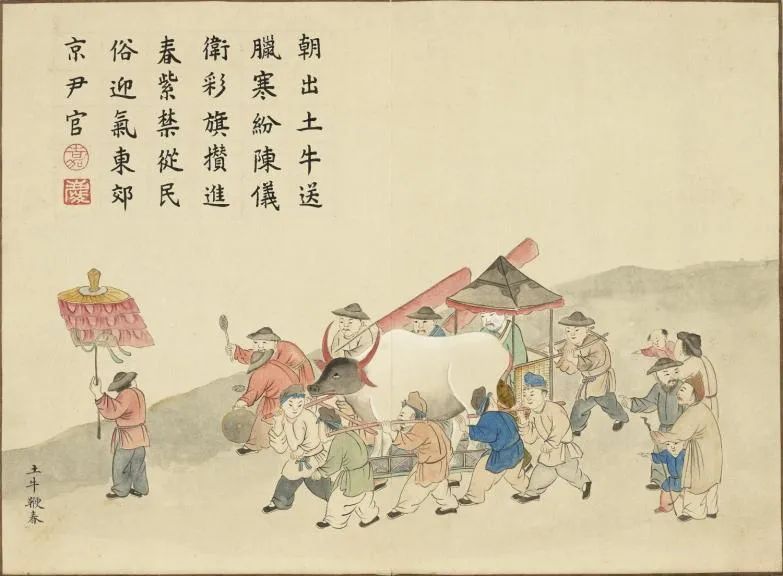 朝出土牛送
臘寒紛陳儀
衛彩旗攢進
春紫禁從民
俗迎氣東郊
京尹官
嘉
慶
土牛鞭春